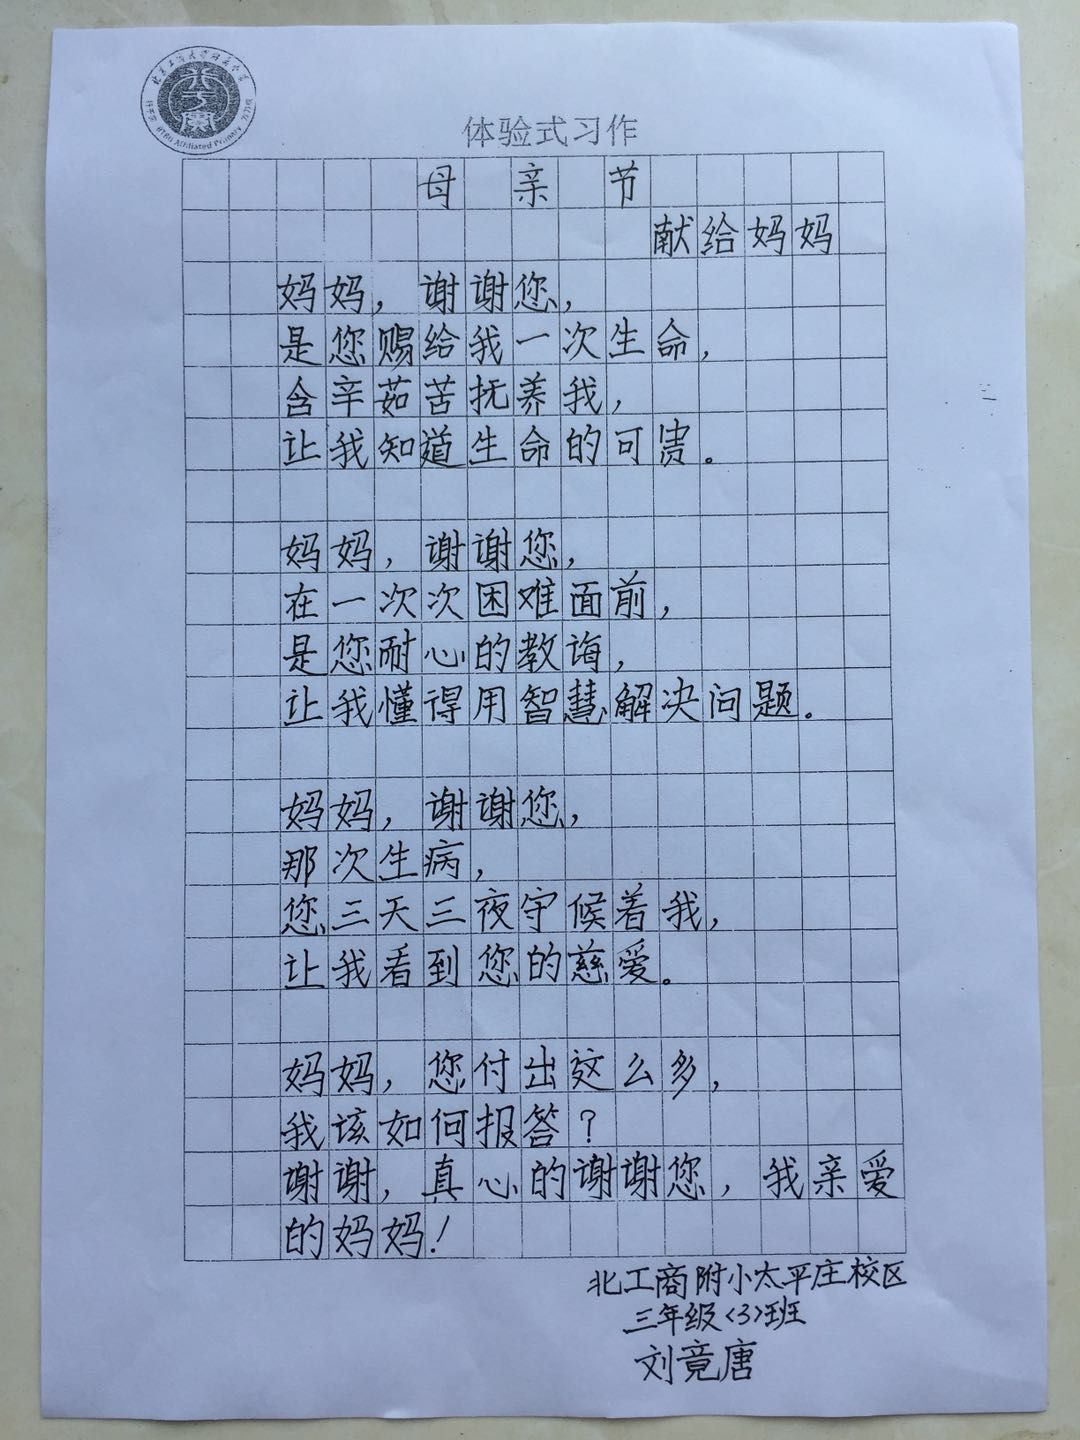 体验式习作
母亲节
献给妈妈
妈妈，谢谢您，
是您赐给我一次生命，
含辛茹苦抚养我，
让我知道生命的可贵。
妈妈，谢谢您，
在一次次困难面前，
是您耐心的教诲，
让我懂得用智慧解决问题。
妈妈，谢谢您，
那次生病，
您三天三夜守候着我，
让我看到您的慈爱。
妈妈，您付出这么多，
我该如何报答？
谢谢，真心的谢谢您，我亲爱
的妈妈！
北工商附小太平庄校区
三年级〈3〉班
刘竟唐